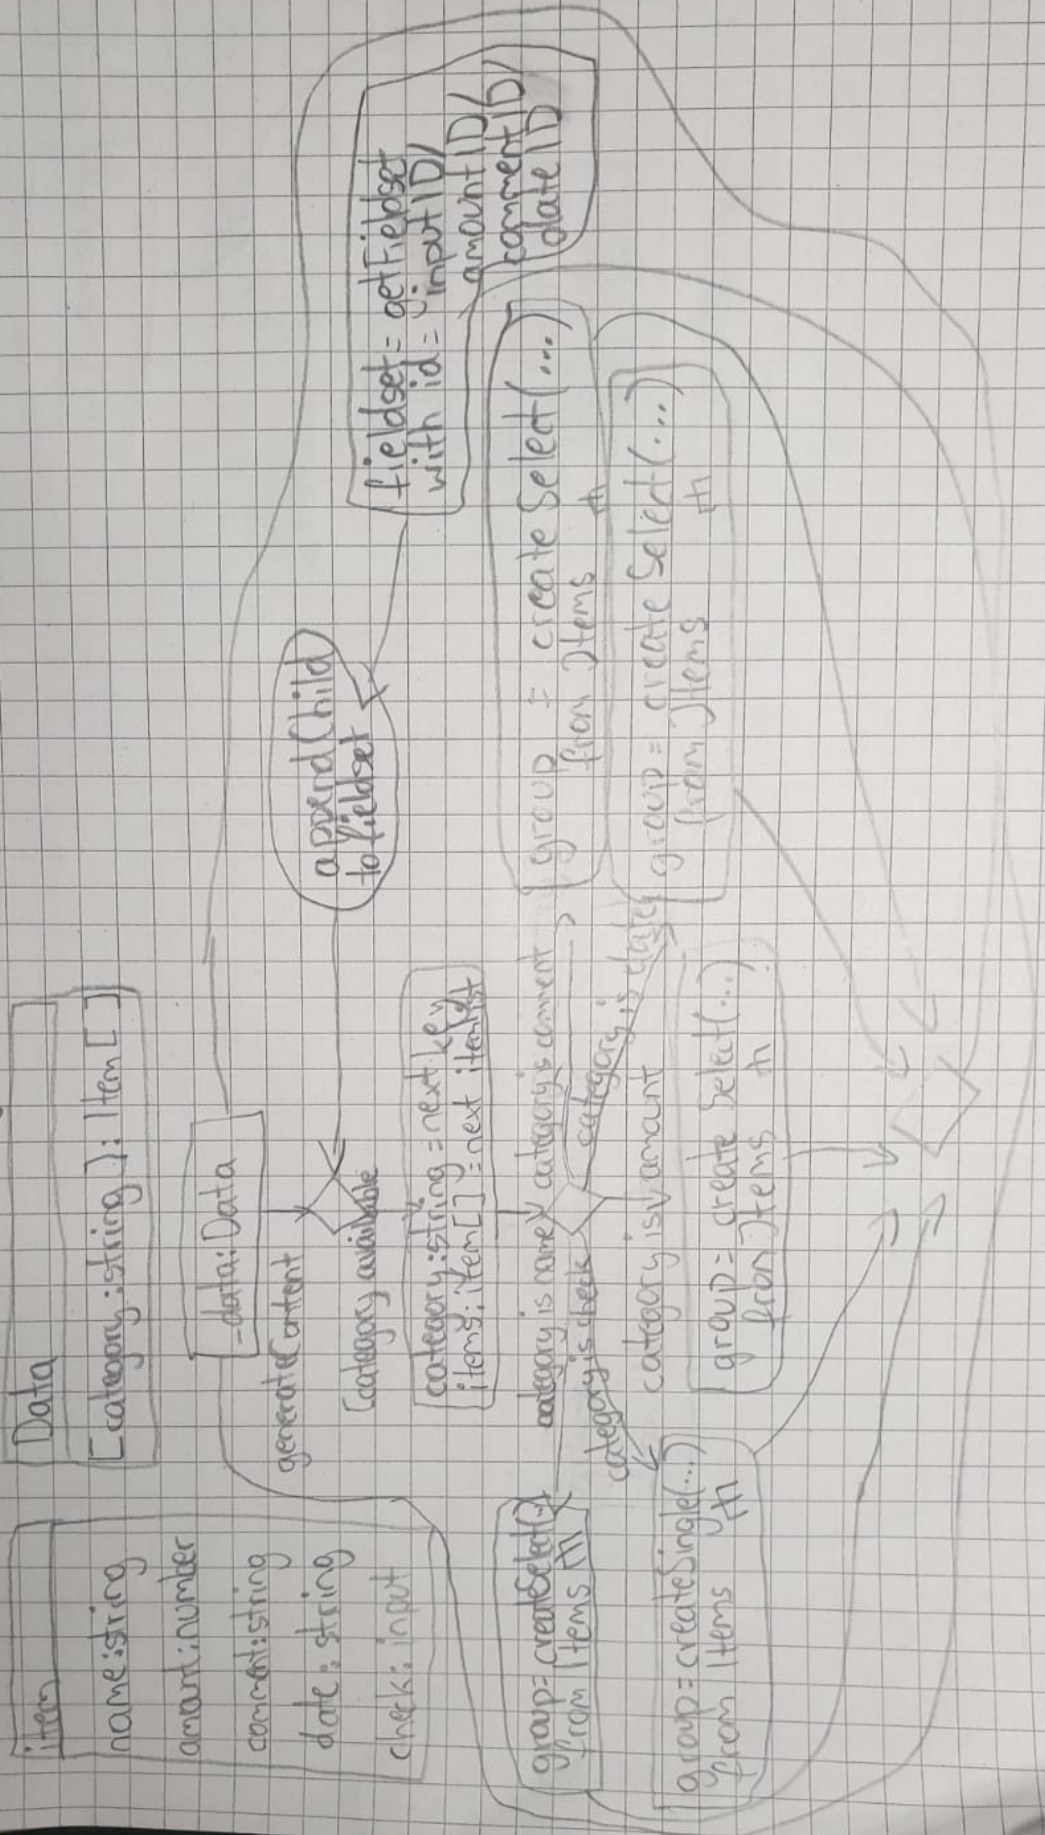 item
name:string
amount:number
comment:string
date:string
check:input
Data
[category:string]:Item[]
-data:Data
generateContent
[category available
category:string = next key
items:item[] = next itemlist
category is name
category is comment
category is check
category is date
category is amount
group=createSelect(..)
from Items
group=createSingle(...)
from Items
group=create Select(...)
from Items
group = create Select(...)
from Items
group = create Select(...)
from Items
appendChild
to fieldset
fieldset=getFieldset
with id=inputID/
amountID/
commentID/
dateID